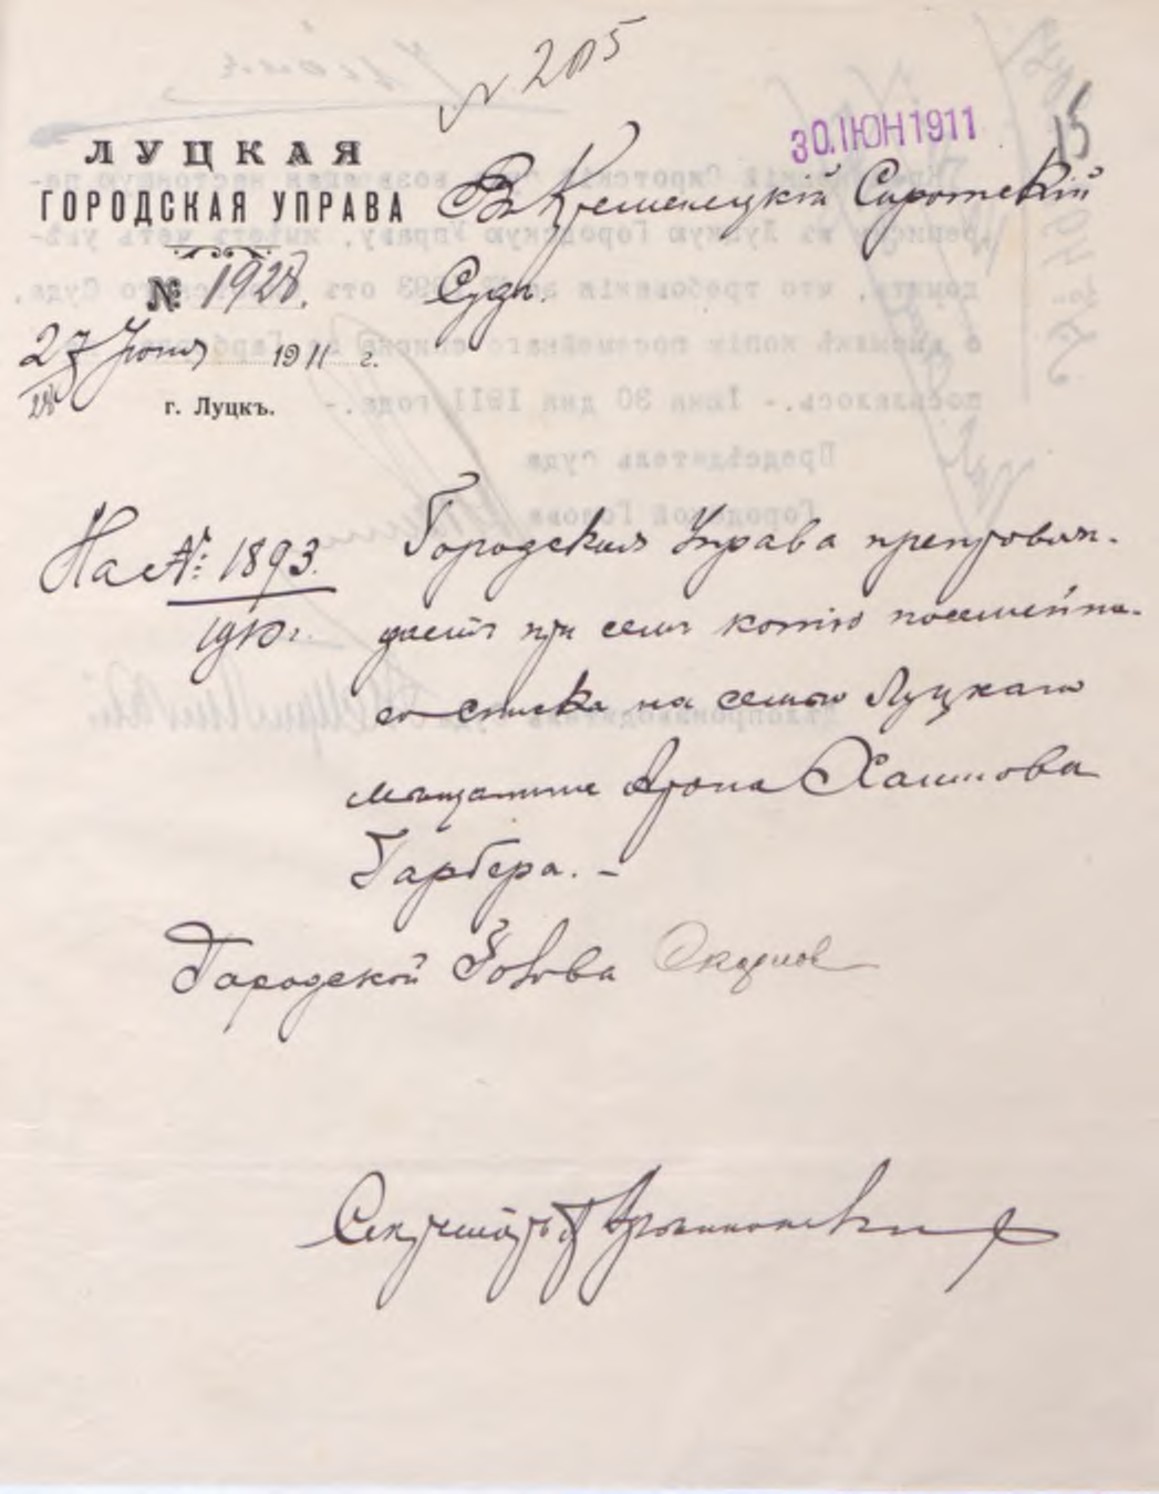 № 205
30.ІЮН1911
15
ЛУЦКАЯ
ГОРОДСКАЯ УПРАВА
№ 1928.
27 Іюня 1911 г.
28
г. Луцкъ.
Въ Кременецкій Сиротскій
Судъ.
На №: 1893.
1910 г.
Городская Управа препровож-
даетъ при семъ копію посемейна-
го списка на семью Луцкаго
мѣщанина Арона Хаимова
Гарбера. -
Городской Голова
Секретарь